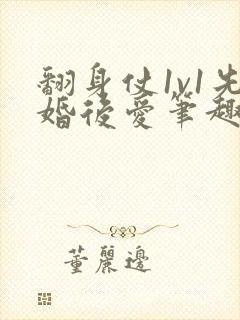 翻身仗1v1先
婚後愛筆趣
董麗邊